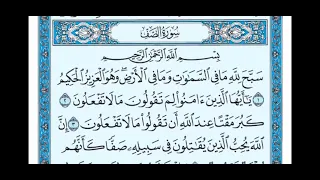 سُورَةُ الصَّفِّ
بِسْمِ اللَّهِ الرَّحْمَٰنِ الرَّحِيمِ
سَبَّحَ لِلَّهِ مَا فِي السَّمَٰوَٰتِ وَمَا فِي الْأَرْضِ وَهُوَ الْعَزِيزُ الْحَكِيمُ
١ يَٰٓأَيُّهَا الَّذِينَ ءَامَنُوا لِمَ تَقُولُونَ مَا لَا تَفْعَلُونَ ٢
كَبُرَ مَقْتًا عِندَ اللَّهِ أَن تَقُولُوا مَا لَا تَفْعَلُونَ ٣ إِنَّ
اللَّهَ يُحِبُّ الَّذِينَ يُقَٰتِلُونَ فِي سَبِيلِهِ صَفًّا كَأَنَّهُم